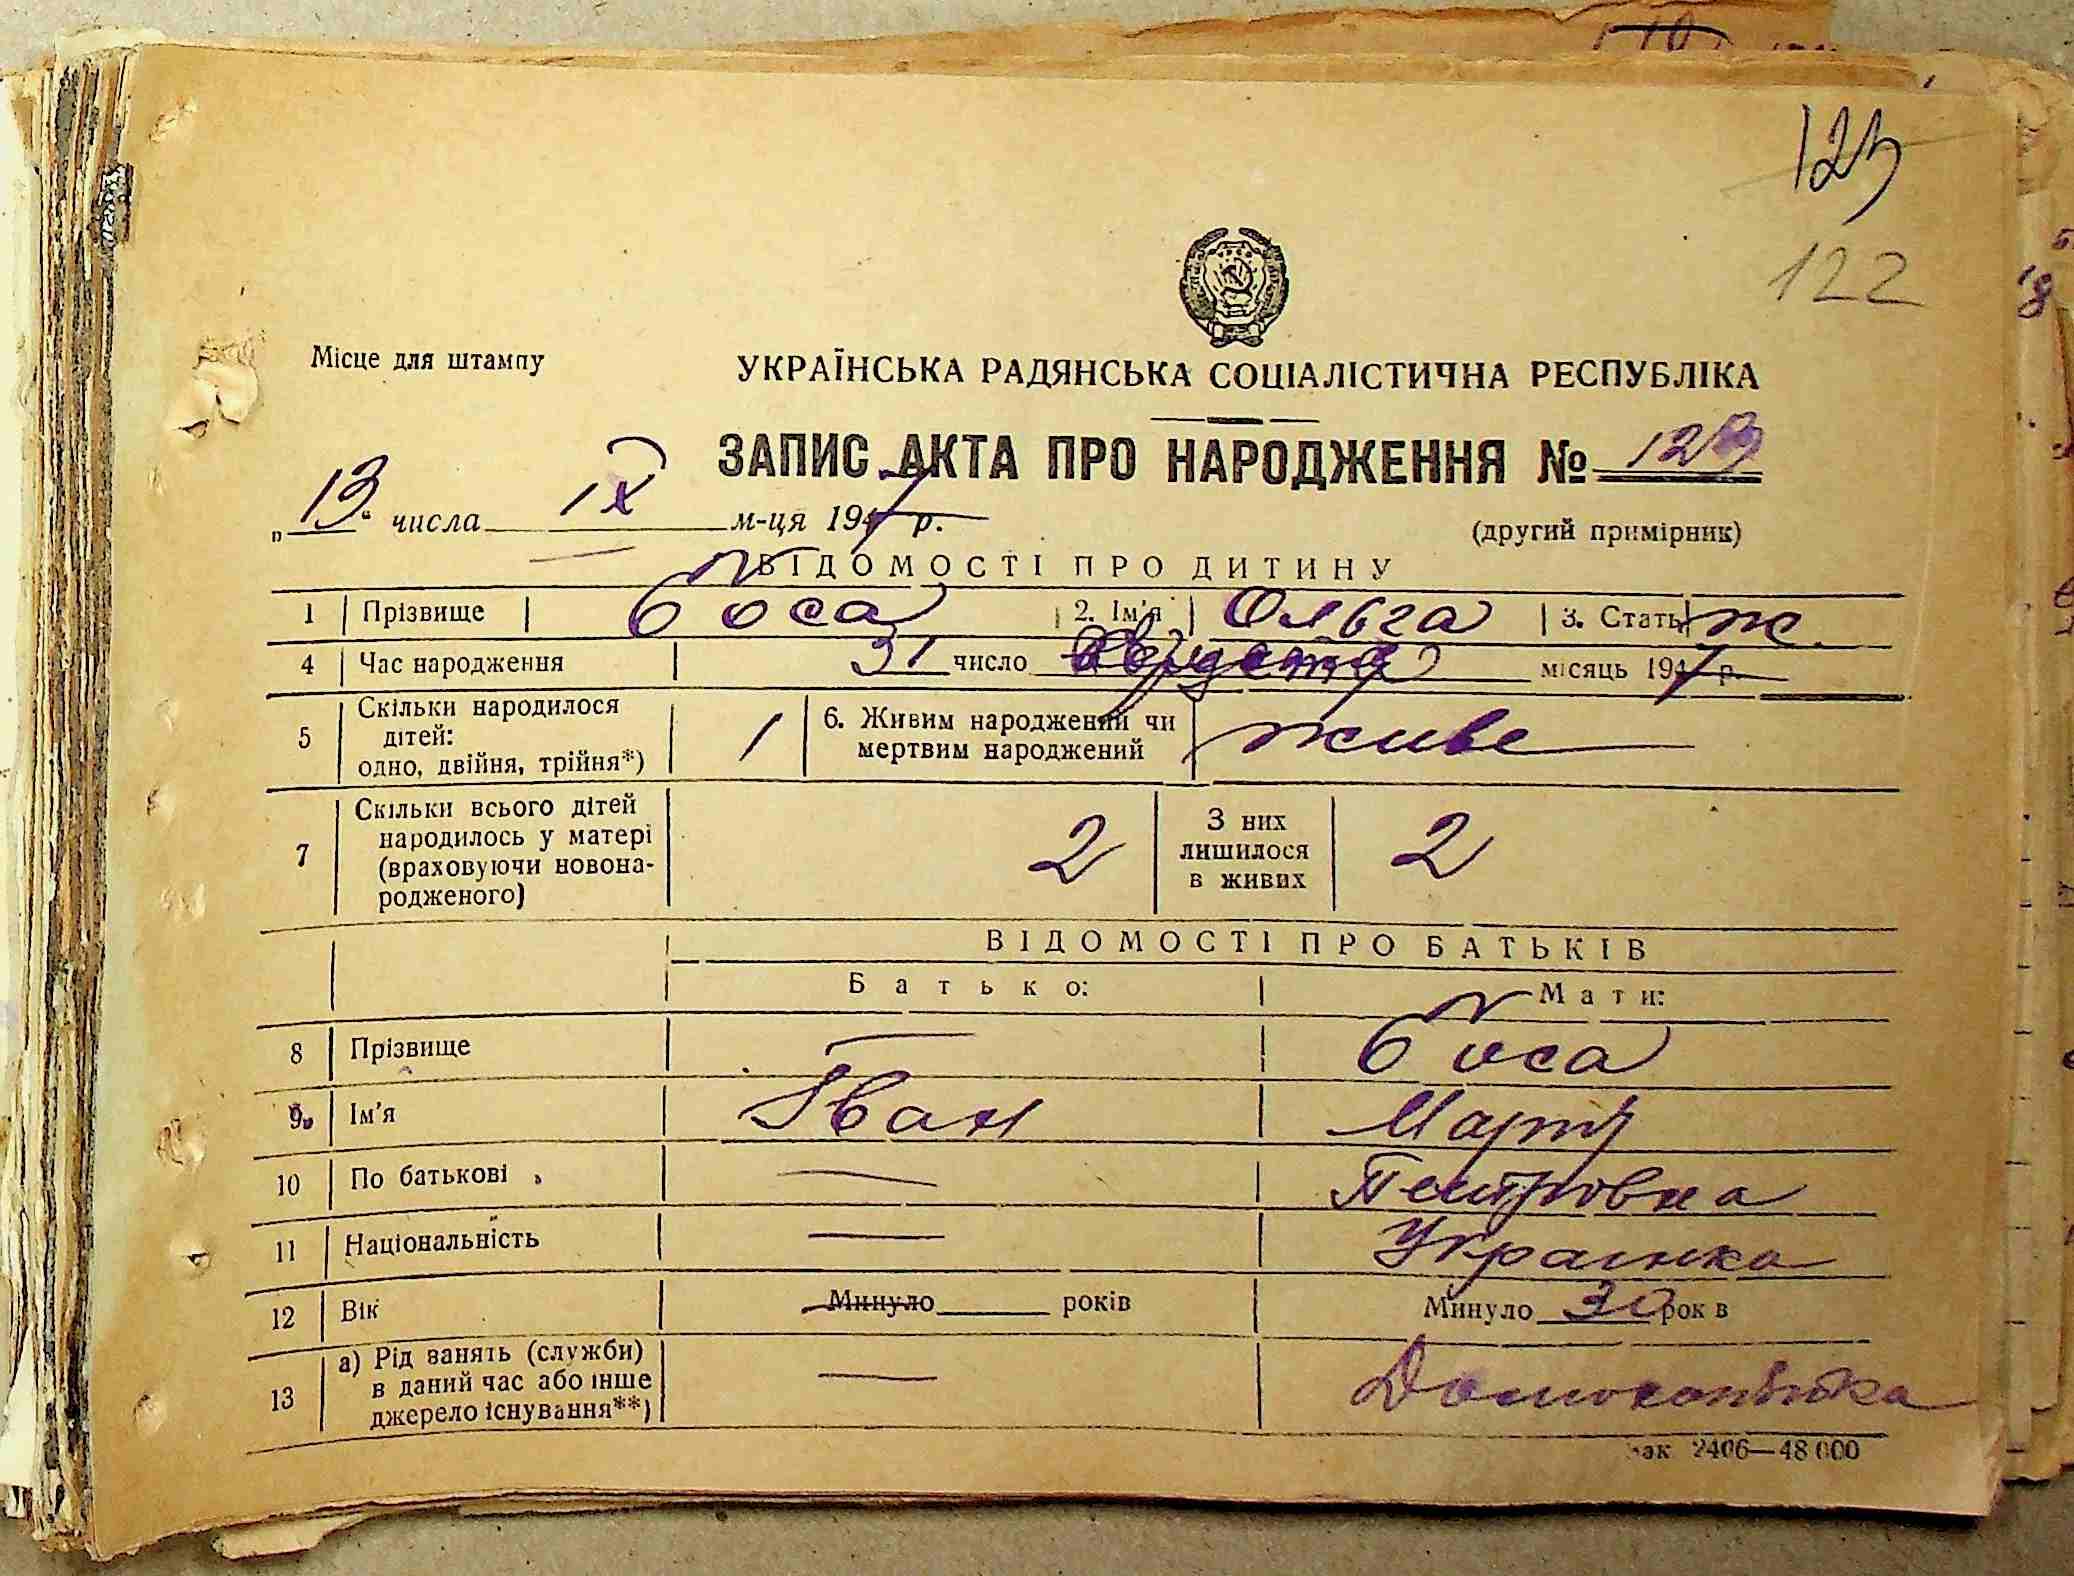 123
122
Місце для штампу
УКРАЇНСЬКА РАДЯНСЬКА СОЦІАЛІСТИЧНА РЕСПУБЛІКА
ЗАПИС АКТА ПРО НАРОДЖЕННЯ № 123
„13“ числа IX м-ця 1947 р.
(другий примірник)
ВІДОМОСТІ ПРО ДИТИНУ
1 Прізвище Боса 2. Ім'я Ольга 3. Стать ж.
4 Час народження 31 число августа місяць 1947 р.
5 Скільки народилося дітей: одно, двійня, трійня*) 1 6. Живим народжений чи мертвим народжений живе
7 Скільки всього дітей народилось у матері (враховуючи новонародженого) 2 З них лишилося в живих 2
ВІДОМОСТІ ПРО БАТЬКІВ
Батько: Мати:
8 Прізвище — Боса
9. Ім'я Іван Марія
10 По батькові — Петровна
11 Національність — Украинка
12 Вік Минуло років Минуло 30 рок в
13 а) Рід занять (служби) в даний час або інше джерело існування**) — Домохозяйка
зак 2406—48 000